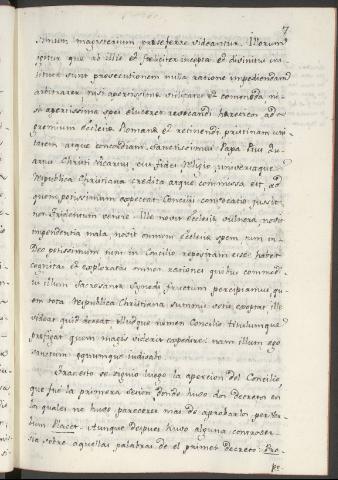 7
simum magisterium præseferre videantur. Illorum
igitur quæ ab illis et feliciter incepta et divinitus
tituta sunt prosecutionem nulla ratione impediendam
arbitrarer nisi apertissima utilitas et commoda
si apertissima spei elucerer revocandi hæreticos ad
gremium ecclesiæ Romanæ et retinendi pristinam uni
tatem atque concordiam. Sanctissimus Papa Pius Qu
artus Christi Vicarius, cui fidei Religio, universaque
Republica Christiana credita atque commissa est, ad
quem potissimum expectat Concilii convocatio, jussit
nos Tridentum venire. Ille novit ecclesiæ vulnera, novit
impendentia mala, novit omnem ecclesiæ spem, tum in
Deo potissimum tum in Concilio repositam esse: habet
cognitas et exploratas omnes rationes quibus commodi
us illum sacrosanctæ Synodi fructum percipiamus quem
tota Republica Christiana summis votis exoptat. Ille
videat quid deceat. Illudque nomen Concilio titulumque
præfigat quem magis viderit expedire. nam illum ego
sanctum optimumque iudicabo.
Tras esto se siguio luego la apercion del Concilio
que fue la primera sesion donde huvo dos Decretos en
los quales no huvo pareceres mas de aprobarlos por Ver
bum Placet. Aunque despues huvo alguna controver
sia sobre aquellas palabras de el primer Decreto: Pro
po